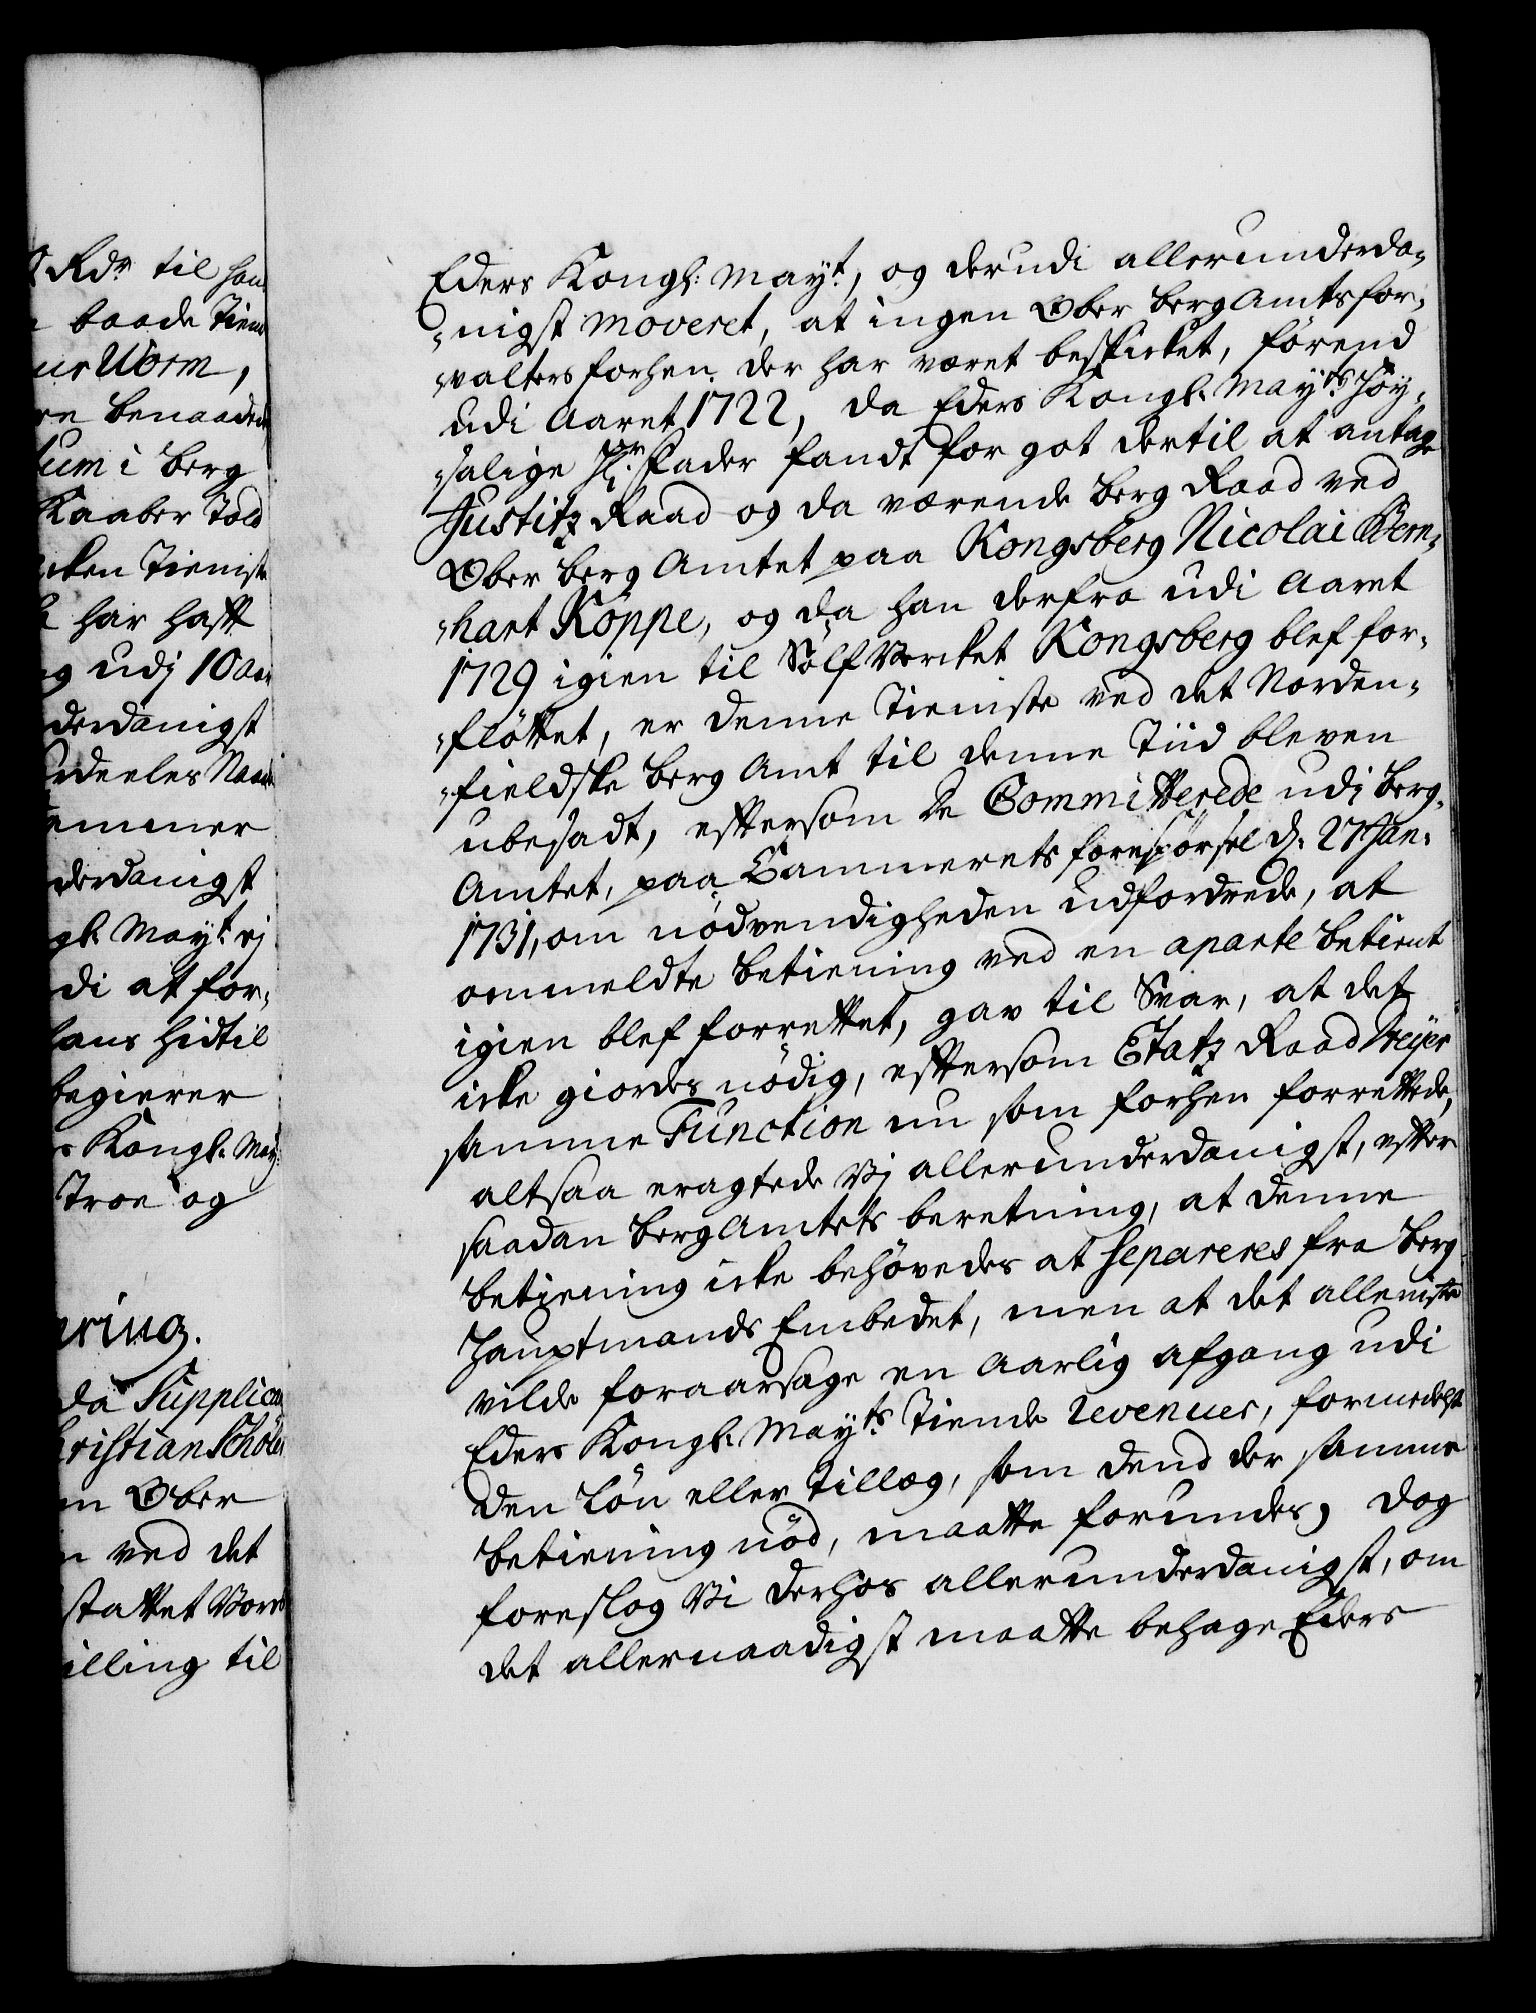 Rdr til han
baade Tiene
Worm,
benaadede
um i Berg
Kaaber Told
Tieniste
har hafft
og udi 10 aar
derdanigst
deeles Naade
emmer
derdanigst
gl: Mayt. ej
di at for„
hans hidtil
begierer
Kongl: May:
Troe og
ering.
da Supplican
hristian Schöler
en Ober
ved det
stattet Vores
illing til
Eders Kongl: Mayt, og derudi allerunderda„
„nigst moveret, at ingen Ober Berg Amtsfor„
„valters forhen der har været beskicket, förend
udi Aaret 1722, da Eders Kongl: Mayts Höy„
„salige Hr. Fader fandt for got dertil at antage
Justitz Raad og da værende Berg Raad ved
Ober Berg Amtet paa Kongsberg Nicolai Bern„
„hart Köppe, og da han derfra udi Aaret
1729 igien til Sölf Vercket Kongsberg blef for„
„flöttet, er denne Tieniste ved det Norden„
„fieldske Berg Amt til denne Tiid bleven
ubesadt, eftersom De Committerede udi Berg„
Amtet, paa Cammerets forespörsel d. 27 Jan:
1731, om nödvendigheden udfordrede, at
ommeldte Betiening ved en aparte Betient
igien blef forrettet, gav til Svar, at det
icke giordes nödig, eftersom Etatz Raad Meyer
samme Function nu som forhen forrettede,
altsaa eragtede Vi allerunderdanigst, efter
saadan Berg Amtets beretning, at denne
Betiening icke behövedes at separeres fra Berg
Hauptmands Embedet, men at det alleniste
vilde foraarsage en Aarlig afgang udi
Eders Kongl: Mayts Tiende Revenuer, formedelst
den Lön eller Tillæg, som dend der samme
Betiening nöd, maatte forundes, dog
foreslog Vi derhos allerunderdanigst, om
det allernaadigst maatte behage Eders